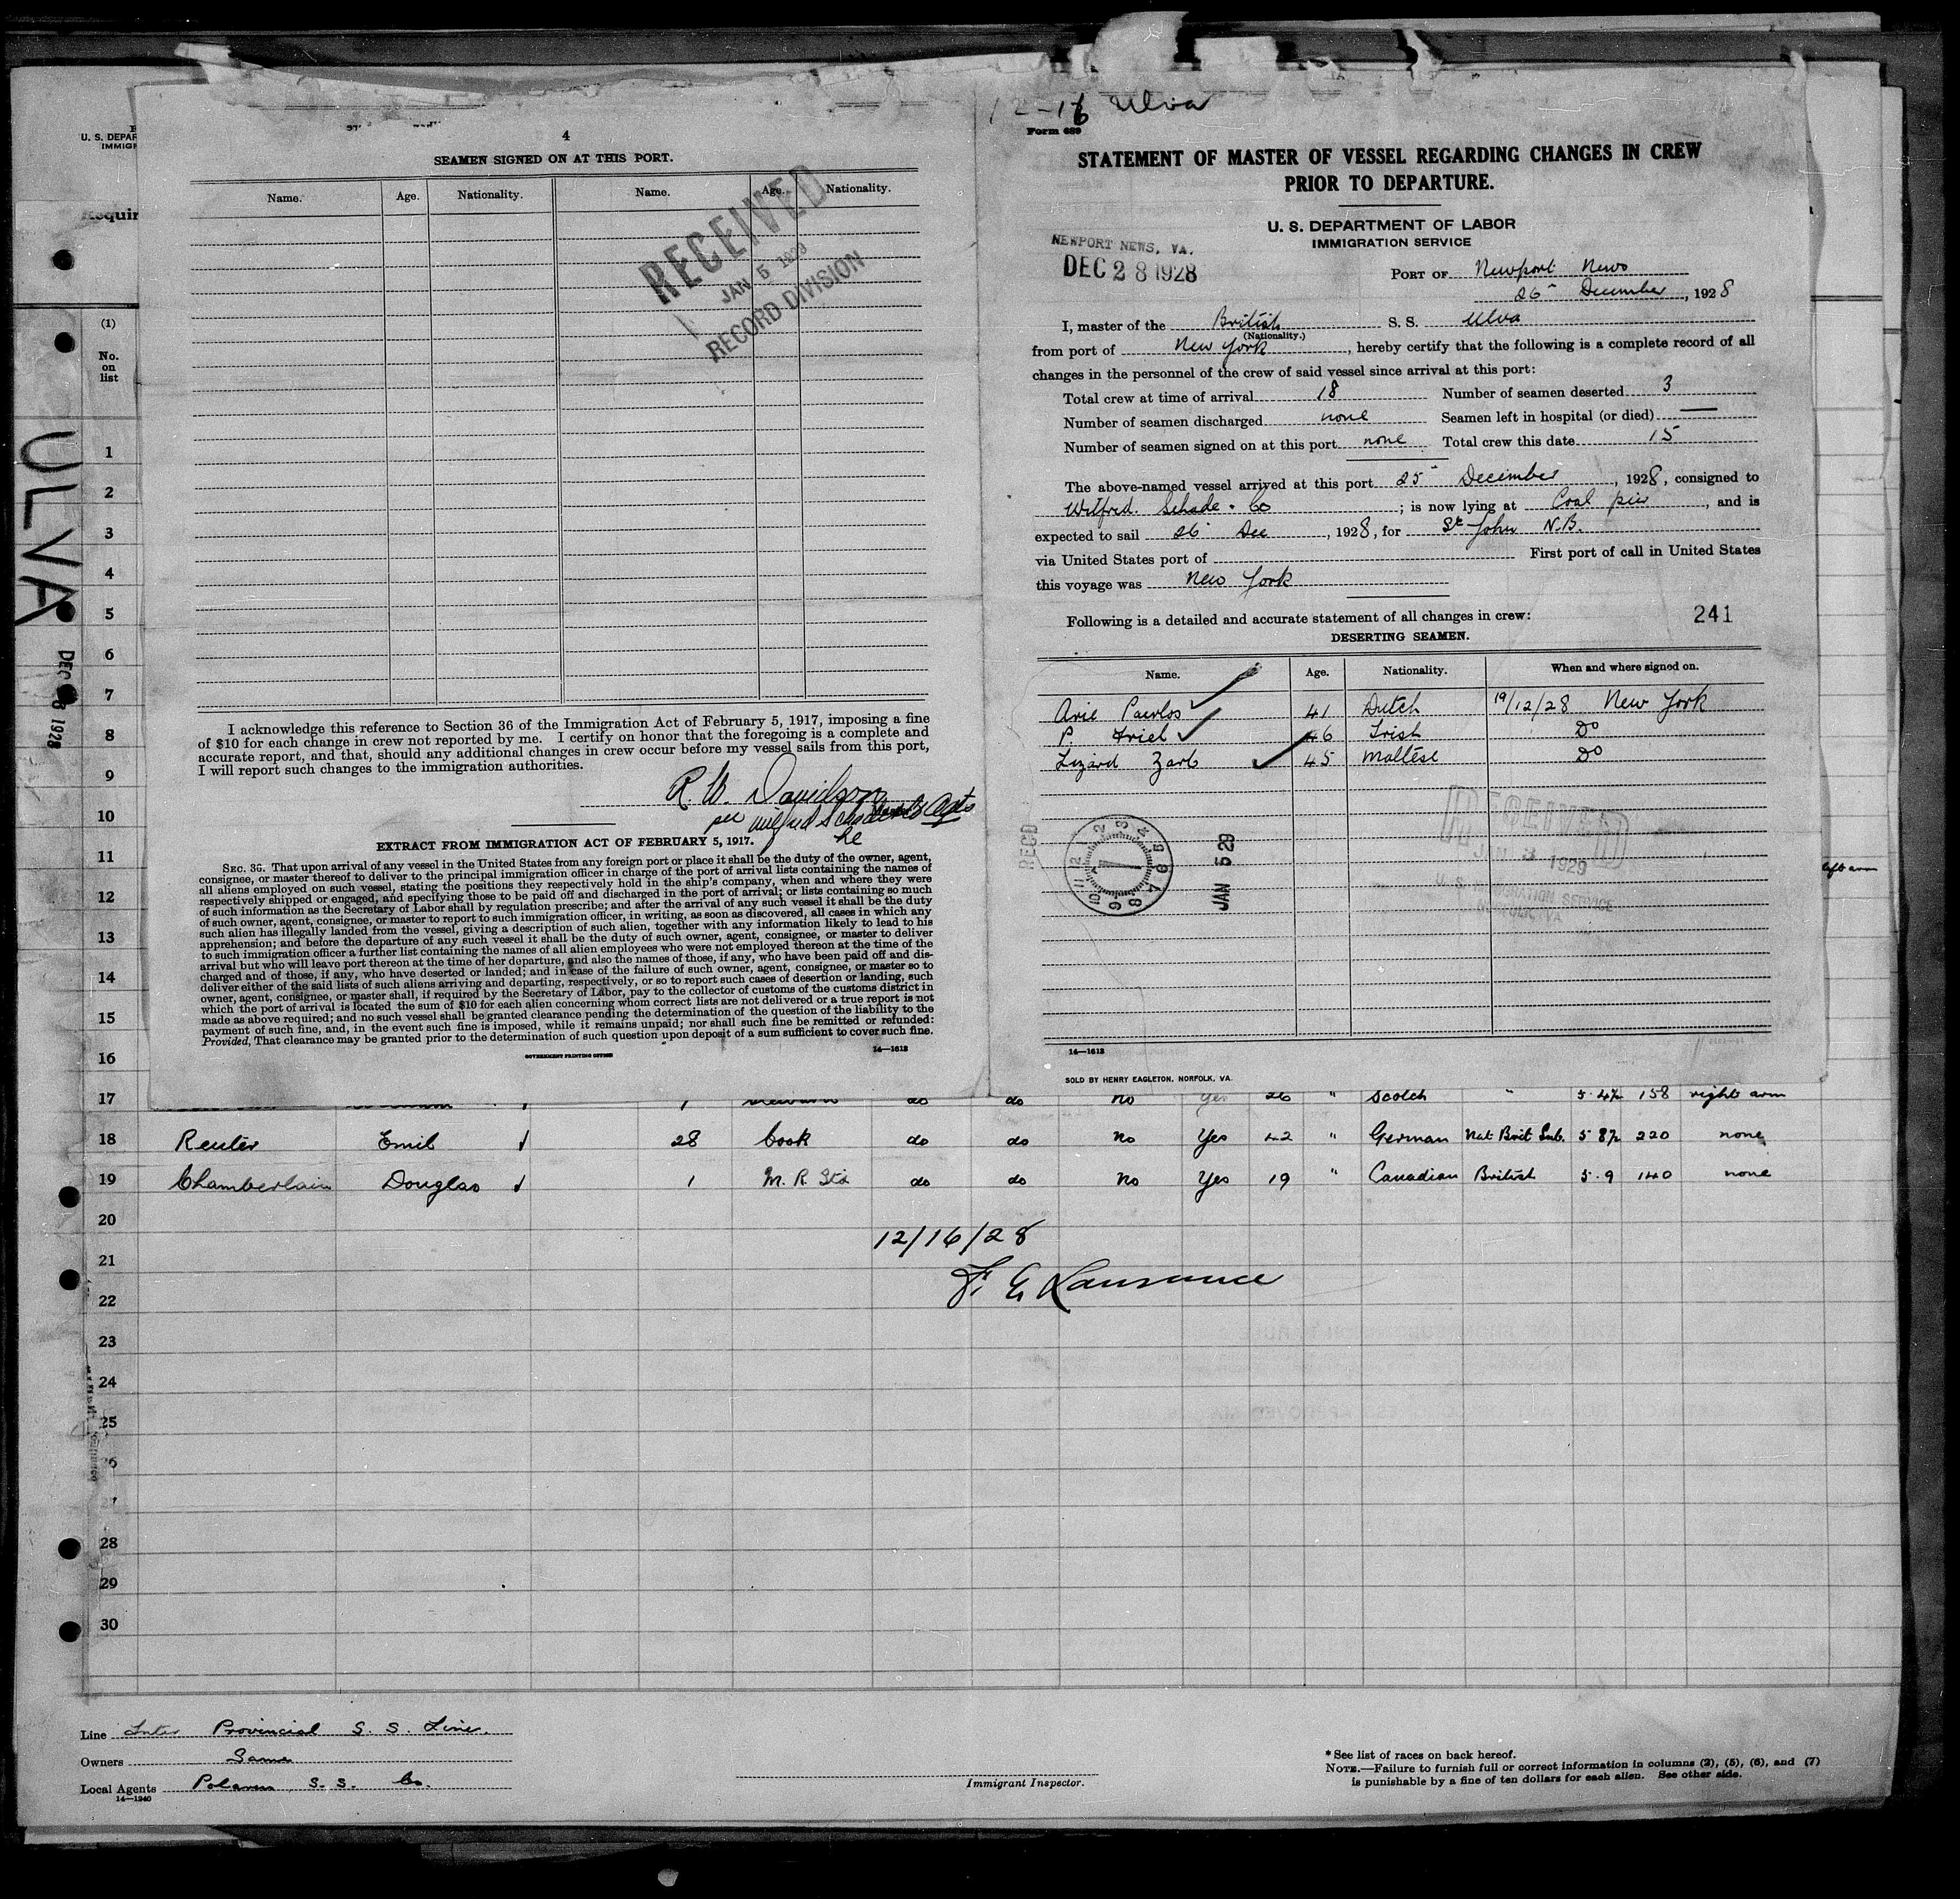 U. S. DEPAR
IMMIGR
Requir
(1)
No.
on
list
ULVA
1
2
3
4
5
6
7
8
9
10
11
12
13
14
15
16
4
SEAMEN SIGNED ON AT THIS PORT.
Name. Age. Nationality. Name. Age. Nationality.
RECEIVED
JAN 5 1929
RECORD DIVISION
I acknowledge this reference to Section 36 of the Immigration Act of February 5, 1917, imposing a fine
of $10 for each change in crew not reported by me. I certify on honor that the foregoing is a complete and
accurate report, and that, should any additional changes in crew occur before my vessel sails from this port,
I will report such changes to the immigration authorities.
R. W. Davidson
per Wilfred Schade & Co Agts
EXTRACT FROM IMMIGRATION ACT OF FEBRUARY 5, 1917.
SEC. 36. That upon arrival of any vessel in the United States from any foreign port or place it shall be the duty of the owner, agent,
consignee, or master thereof to deliver to the principal immigration officer in charge of the port of arrival lists containing the names of
all aliens employed on such vessel, stating the positions they respectively hold in the ship's company, when and where they were
respectively shipped or engaged, and specifying those to be paid off and discharged in the port of arrival; or lists containing so much
of such information as the Secretary of Labor shall by regulation prescribe; and after the arrival of any such vessel it shall be the duty
of such owner, agent, consignee, or master to report to such immigration officer, in writing, as soon as discovered, all cases in which any
such alien has illegally landed from the vessel, giving a description of such alien, together with any information likely to lead to his
apprehension; and before the departure of any such vessel it shall be the duty of such owner, agent, consignee, or master to deliver
to such immigration officer a further list containing the names of all alien employees who were not employed thereon at the time of the
arrival but who will leave port thereon at the time of her departure, and also the names of those, if any, who have been paid off and dis-
charged and of those, if any, who have deserted or landed; and in case of the failure of such owner, agent, consignee, or master so to
deliver either of the said lists of such aliens arriving and departing, respectively, or so to report such cases of desertion or landing, such
owner, agent, consignee, or master shall, if required by the Secretary of Labor, pay to the collector of customs of the customs district in
which the port of arrival is located the sum of $10 for each alien concerning whom correct lists are not delivered or a true report is not
made as above required; and no such vessel shall be granted clearance pending the determination of the question of the liability to the
payment of such fine, and, in the event such fine is imposed, while it remains unpaid; nor shall such fine be remitted or refunded:
Provided, That clearance may be granted prior to the determination of such question upon deposit of a sum sufficient to cover such fine.
GOVERNMENT PRINTING OFFICE 14—1613
12-16 Ulva
Form 689
STATEMENT OF MASTER OF VESSEL REGARDING CHANGES IN CREW
PRIOR TO DEPARTURE.
U. S. DEPARTMENT OF LABOR
IMMIGRATION SERVICE
NEWPORT NEWS, VA.
DEC 28 1928
PORT OF Newport News
26 December, 1928
I, master of the British S. S. Ulva
(Nationality.)
from port of New York, hereby certify that the following is a complete record of all
changes in the personnel of the crew of said vessel since arrival at this port:
Total crew at time of arrival 18 Number of seamen deserted 3
Number of seamen discharged none Seamen left in hospital (or died) —
Number of seamen signed on at this port none Total crew this date 15
The above-named vessel arrived at this port 25 December, 1928, consigned to
Wilfred. Schade & Co; is now lying at Coal pier, and is
expected to sail 26 Dec, 1928, for St John N.B.
via United States port of First port of call in United States
this voyage was New York
Following is a detailed and accurate statement of all changes in crew: 241
DESERTING SEAMEN.
Name. Age. Nationality. When and where signed on.
Arie Pawlos 41 Dutch 19/12/28 New York
P Friel 46 Irish Do
Lizard Zarb 45 Maltese Do
RECEIVED
JAN 3 1929
U. S. IMMIGRATION SERVICE
NORFOLK, VA.
REC'D
JAN 5 29
14—1613
SOLD BY HENRY EAGLETON, NORFOLK, VA.
left arm
17 1 do do no yes 26 " Scotch " 5.4½ 158 right arm
18 Reuter Emil 28 Cook do do no Yes 42 " German Nat Brit Sub. 5 8½ 220 none
19 Chamberlain Douglas 1 M. R. Std do do no Yes 19 " Canadian British 5.9 140 none
20
12/16/28
21
F. G. Lawrance
22
23
24
25
26
27
28
29
30
Line Inter Provincial S. S. Line.
Owners Same
Local Agents Polarus S. S. Co.
14—1240
Immigrant Inspector.
* See list of races on back hereof.
NOTE.—Failure to furnish full or correct information in columns (2), (5), (6), and (7)
is punishable by a fine of ten dollars for each alien. See other side.